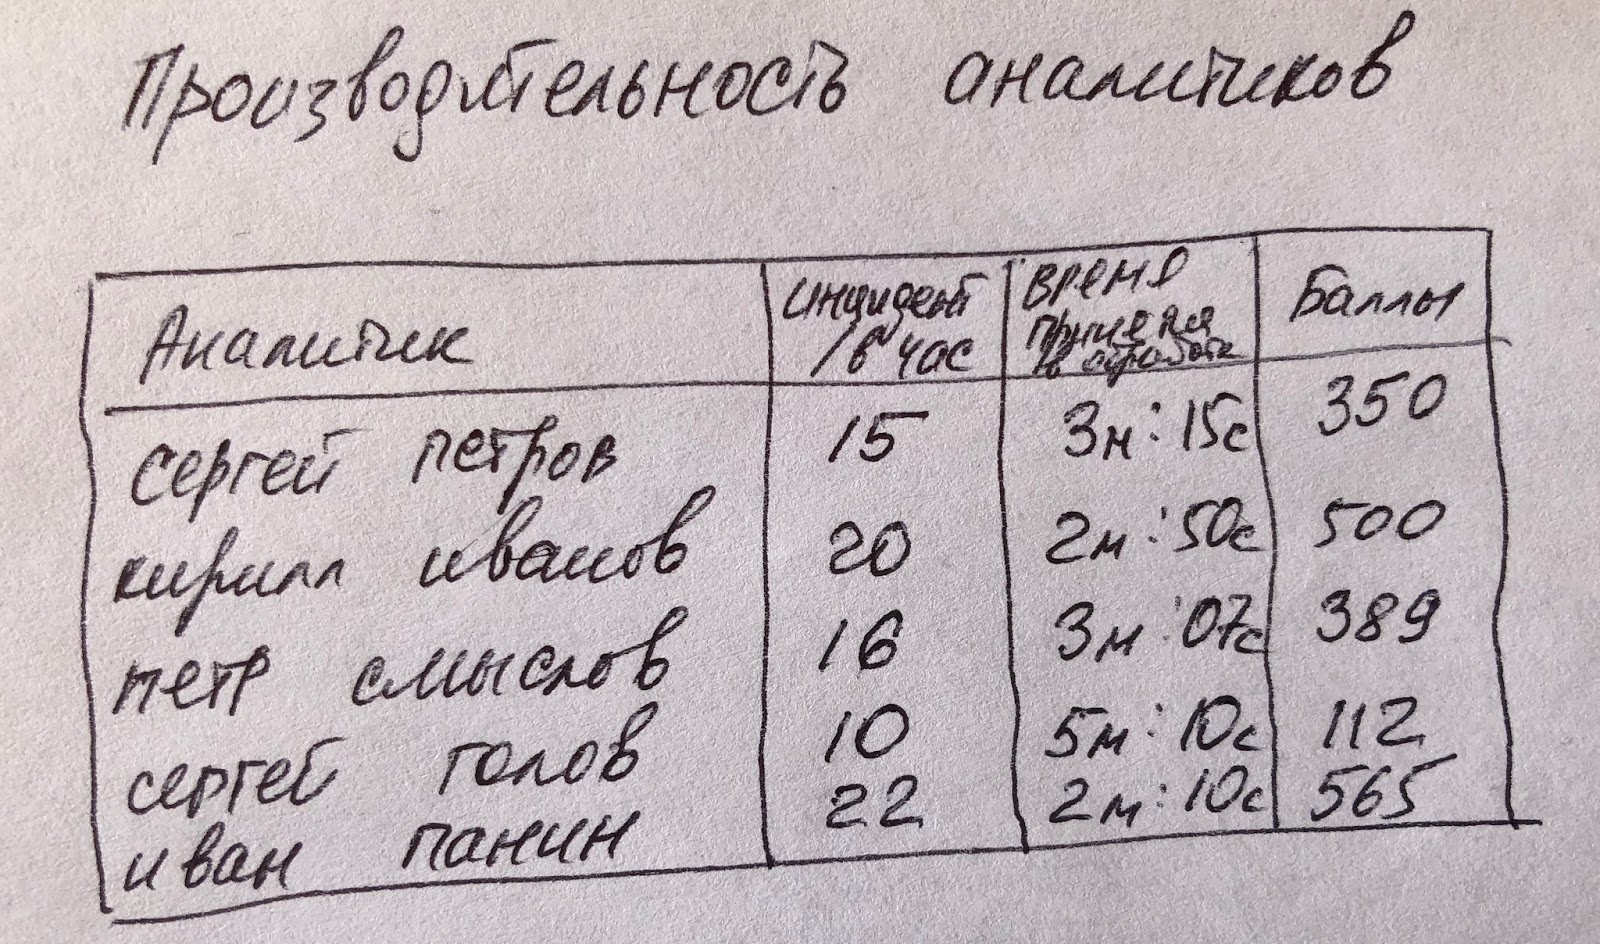 Производительность аналитиков
Аналитик инцидент /в час Время принятия в обработк Баллы
сергей петров 15 3м:15с 350
кирилл иванов 20 2м:50с 500
петр смыслов 16 3м:07с 389
сергей голов 10 5м:10с 112
иван панин 22 2м:10с 565